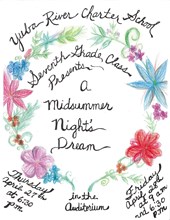 Yuba River Charter School
Seventh Grade Class
Presents
A
Midsummer
Night's
Dream
in the
Auditorium
Thursday
April 27th
at 6:30
p.m.
Friday
April 28th
at 9 am
and 6:30
p.m.